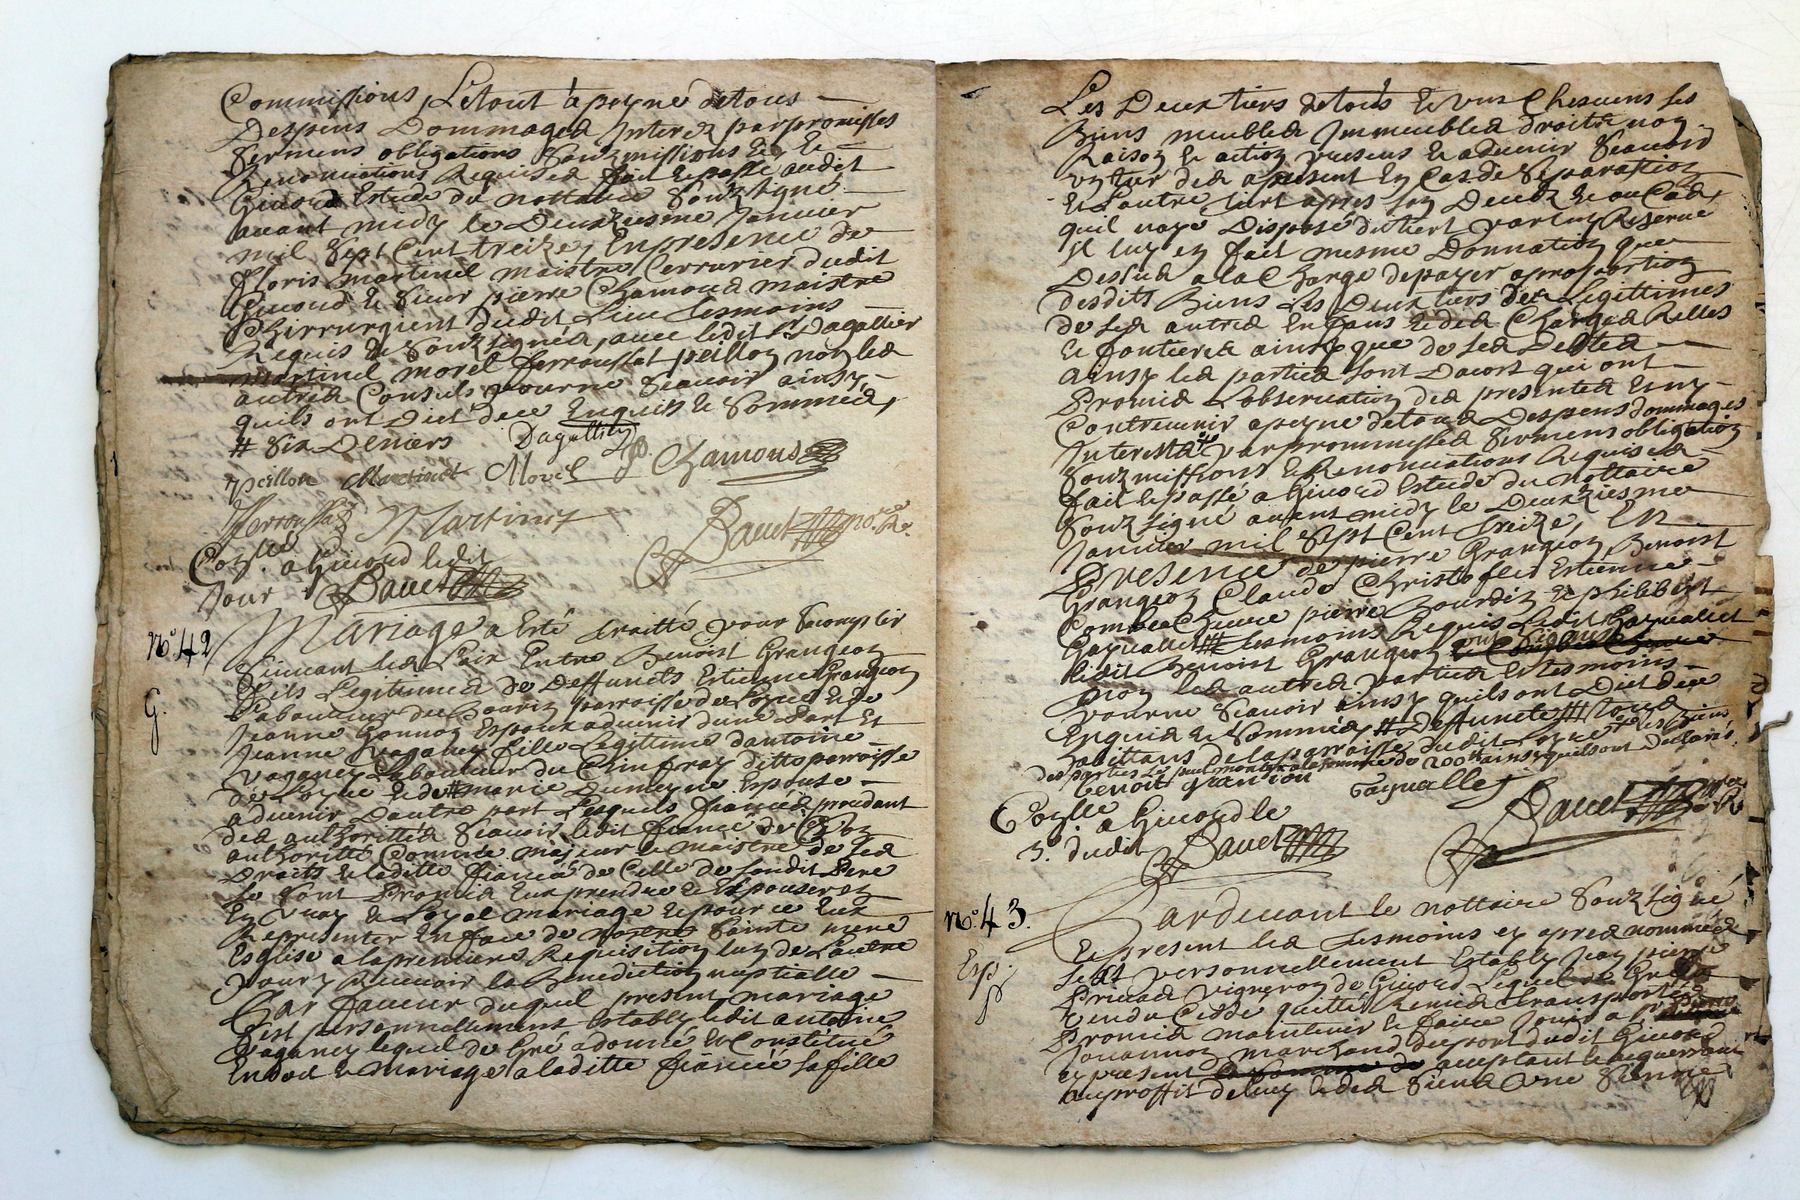 Commissions, Letout a peyne detous
Despens Dommages Interez parpromisses
Sermens obligations Souzmissions et
Renonciations Requises fait et passé audit
Givord Estude du nottaire Souzsigné
avant midy le Deuxiesme Janvier
mil Sept Cent treize, En presence de
Floris martinel maistre Cerrurier dudit
Givord & Sieur pierre Chamoud maistre
Chirrurgient dudit Lieu tesmoins
Requis & Souzsignés, avec ledit Sr Dagallier
martinel morel ferroussat peillon non les
autres Conseils pourne Scavoir ainsy
quils ont Diet dece Enquis & Sommés,
# Six Deniers Dagallier
peillon Martinel Morel P. Chamoud
ferroussat Martiny Bauet no.re R.
Con.llé a Givord ledit
Jour Bauet
No. 42 Mariage a Esté traitté pour Sacomplir
Suivant les Loix Entre Benoist Grangeon
G. fils Legitime de Deffuncts Estienne Grangeon
Laboureur de paroisse de Loyre & de
Jeanne Bonnon Espoux advenir dune Part Et
Jeanne Vaganey fille Legitime dantoine
Vaganey Laboureur du ditto parroisse
de Loyre & de marie Espouse
advenir Dautre part Lesquels fiancés procedant
des authorités Scavoir ledit fiancé de Son
authorité Comme majeur & maistre de Ses
Droits & laditte fiancée de Celle de Sondit Pere
Se Sont Promis Eux prendre & Espouser En
En vray & Loyal mariage & pour ce Eux
Representer En face de nostre Sainte mere
Esglise a la premiere Requisition lun de Lautre
pour y Recevoir la Benediction nuptialle
Par faveur duquel present mariage
Sest personnellement Estably ledit antoine
Vaganey lequel de Gré adonné & Constitué
En dot & mariage a laditte fiancée Sa fille
Les Deux tiers detous & uns Chescuns Ses
Biens meubles Immeubles droits noms
Raison & action presens & advenir Scavoir
un tier des apresent En Cas de Separation
& Lautre tiers apres Son Decez & au Cas
quil naye Disposé dutiert par luy Reservé
Il luy en fait mesme Donnation que
Dessus a la Charge depayer aproportion
desdits Biens Les Deux tiers des Legittimes
de Ses autres Enfans & des Charges Relles
& fontieres ainsy que de Ses Debtes
ainsy les parties Sont Dacort qui ont
Promis Lobservation des presentes & ny
Contrevenir apeyne detous Despens dommages
Interests parprommisses Sermens obligation
Souzmissions & Renonciations Requises
fait & passé a Givord Estude du nottaire
Souzsigné avant midy le Deuxiesme
Janvier mil Sept Cent treize, En
Presence de pierre Grangeon, Benoist
Grangeon Claude Christofle Estienne
Combe pierre Bourdin & philibert
Gaynallet tesmoins Requis Ledit Gaynallet
ledit Benoist Grangeon ont Signé
non les autres parties & tesmoins
pourne Scavoir ainsy quils ont Diet dece
Enquis & Sommés # Deffuncte # tous
habittans de la parroisse dudit Loyre # les Biens
des parties la somme de 200lt ainsy quils ont Declairé
benoit granion Gaynallet Bauet no.re R.
Con.llé a Givord le
3. dudit Bauet
No. 43. Pardevant le nottaire Souzsigné
& present les tesmoins cy apres nommés
Exp. Sest personnellement Estably pierre
Privas Vigneron de Givord Lequel de Gré a
Vendu Cedde quitté Remis transporté &
Promis maintenir & faire Jouir a pierre
Jouannon marchand dudit Givord
cy present acceptant & acquerrant
auproffit deluy & des Siens Une